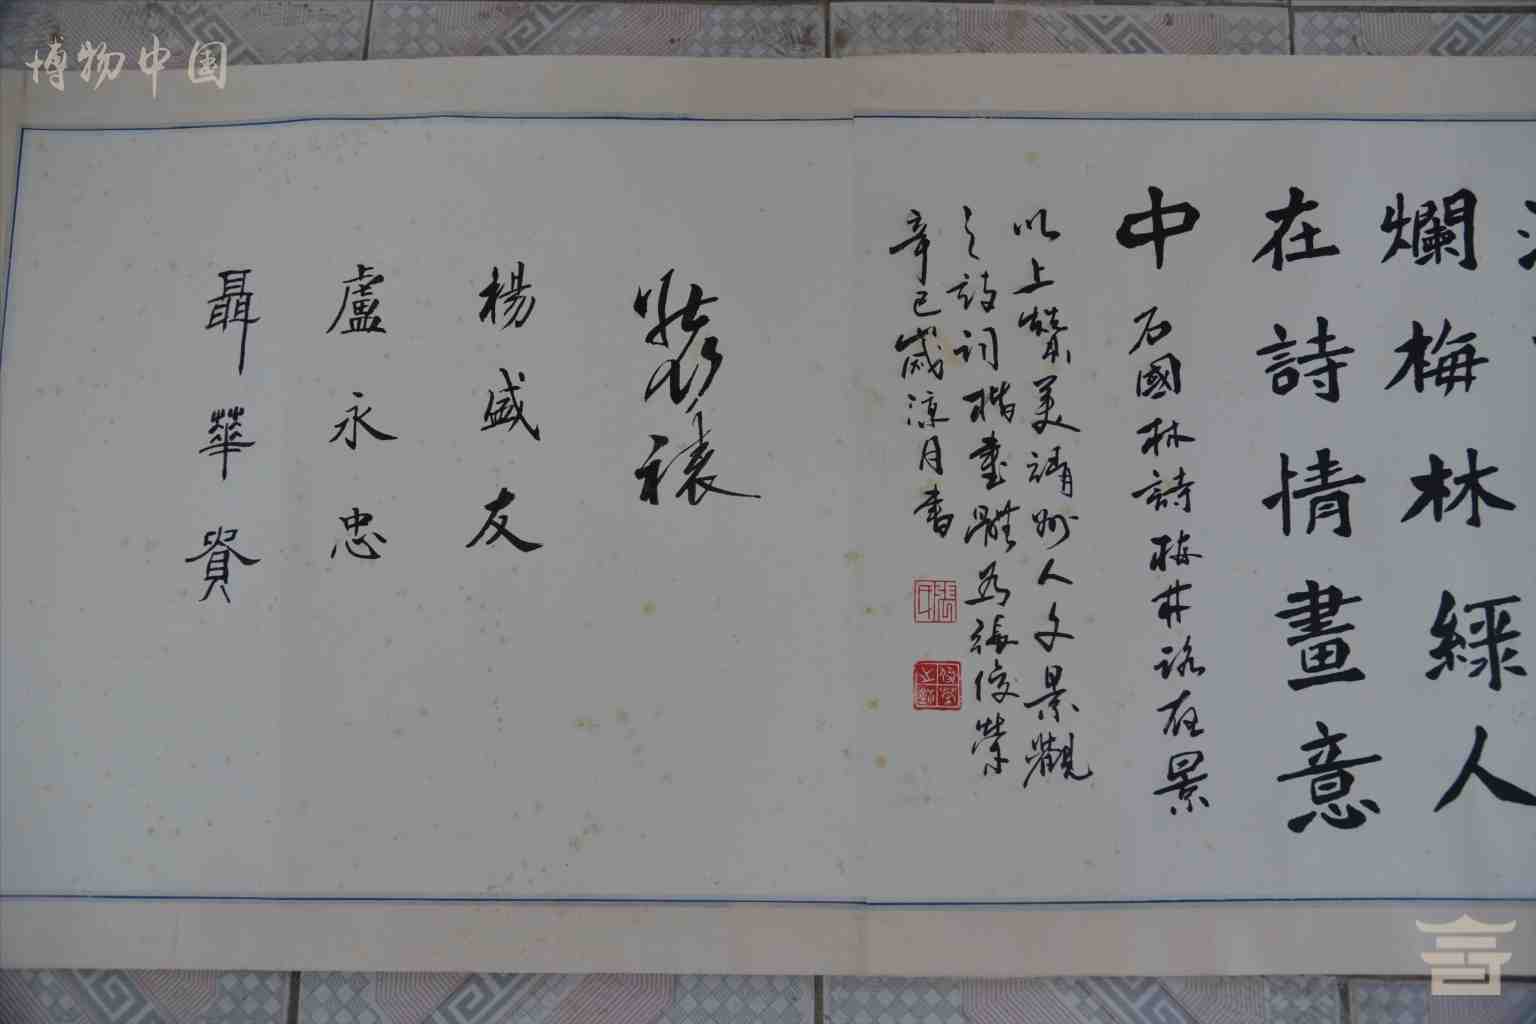 博物中国
爛梅林綠人
在詩情畫意
中 石國林詩梅林在景
以上贊美靖州人文景觀
之詩詞楷書體為張俊榮
辛巳歲涼月書
裝裱
楊盛友
盧永忠
聶華貴